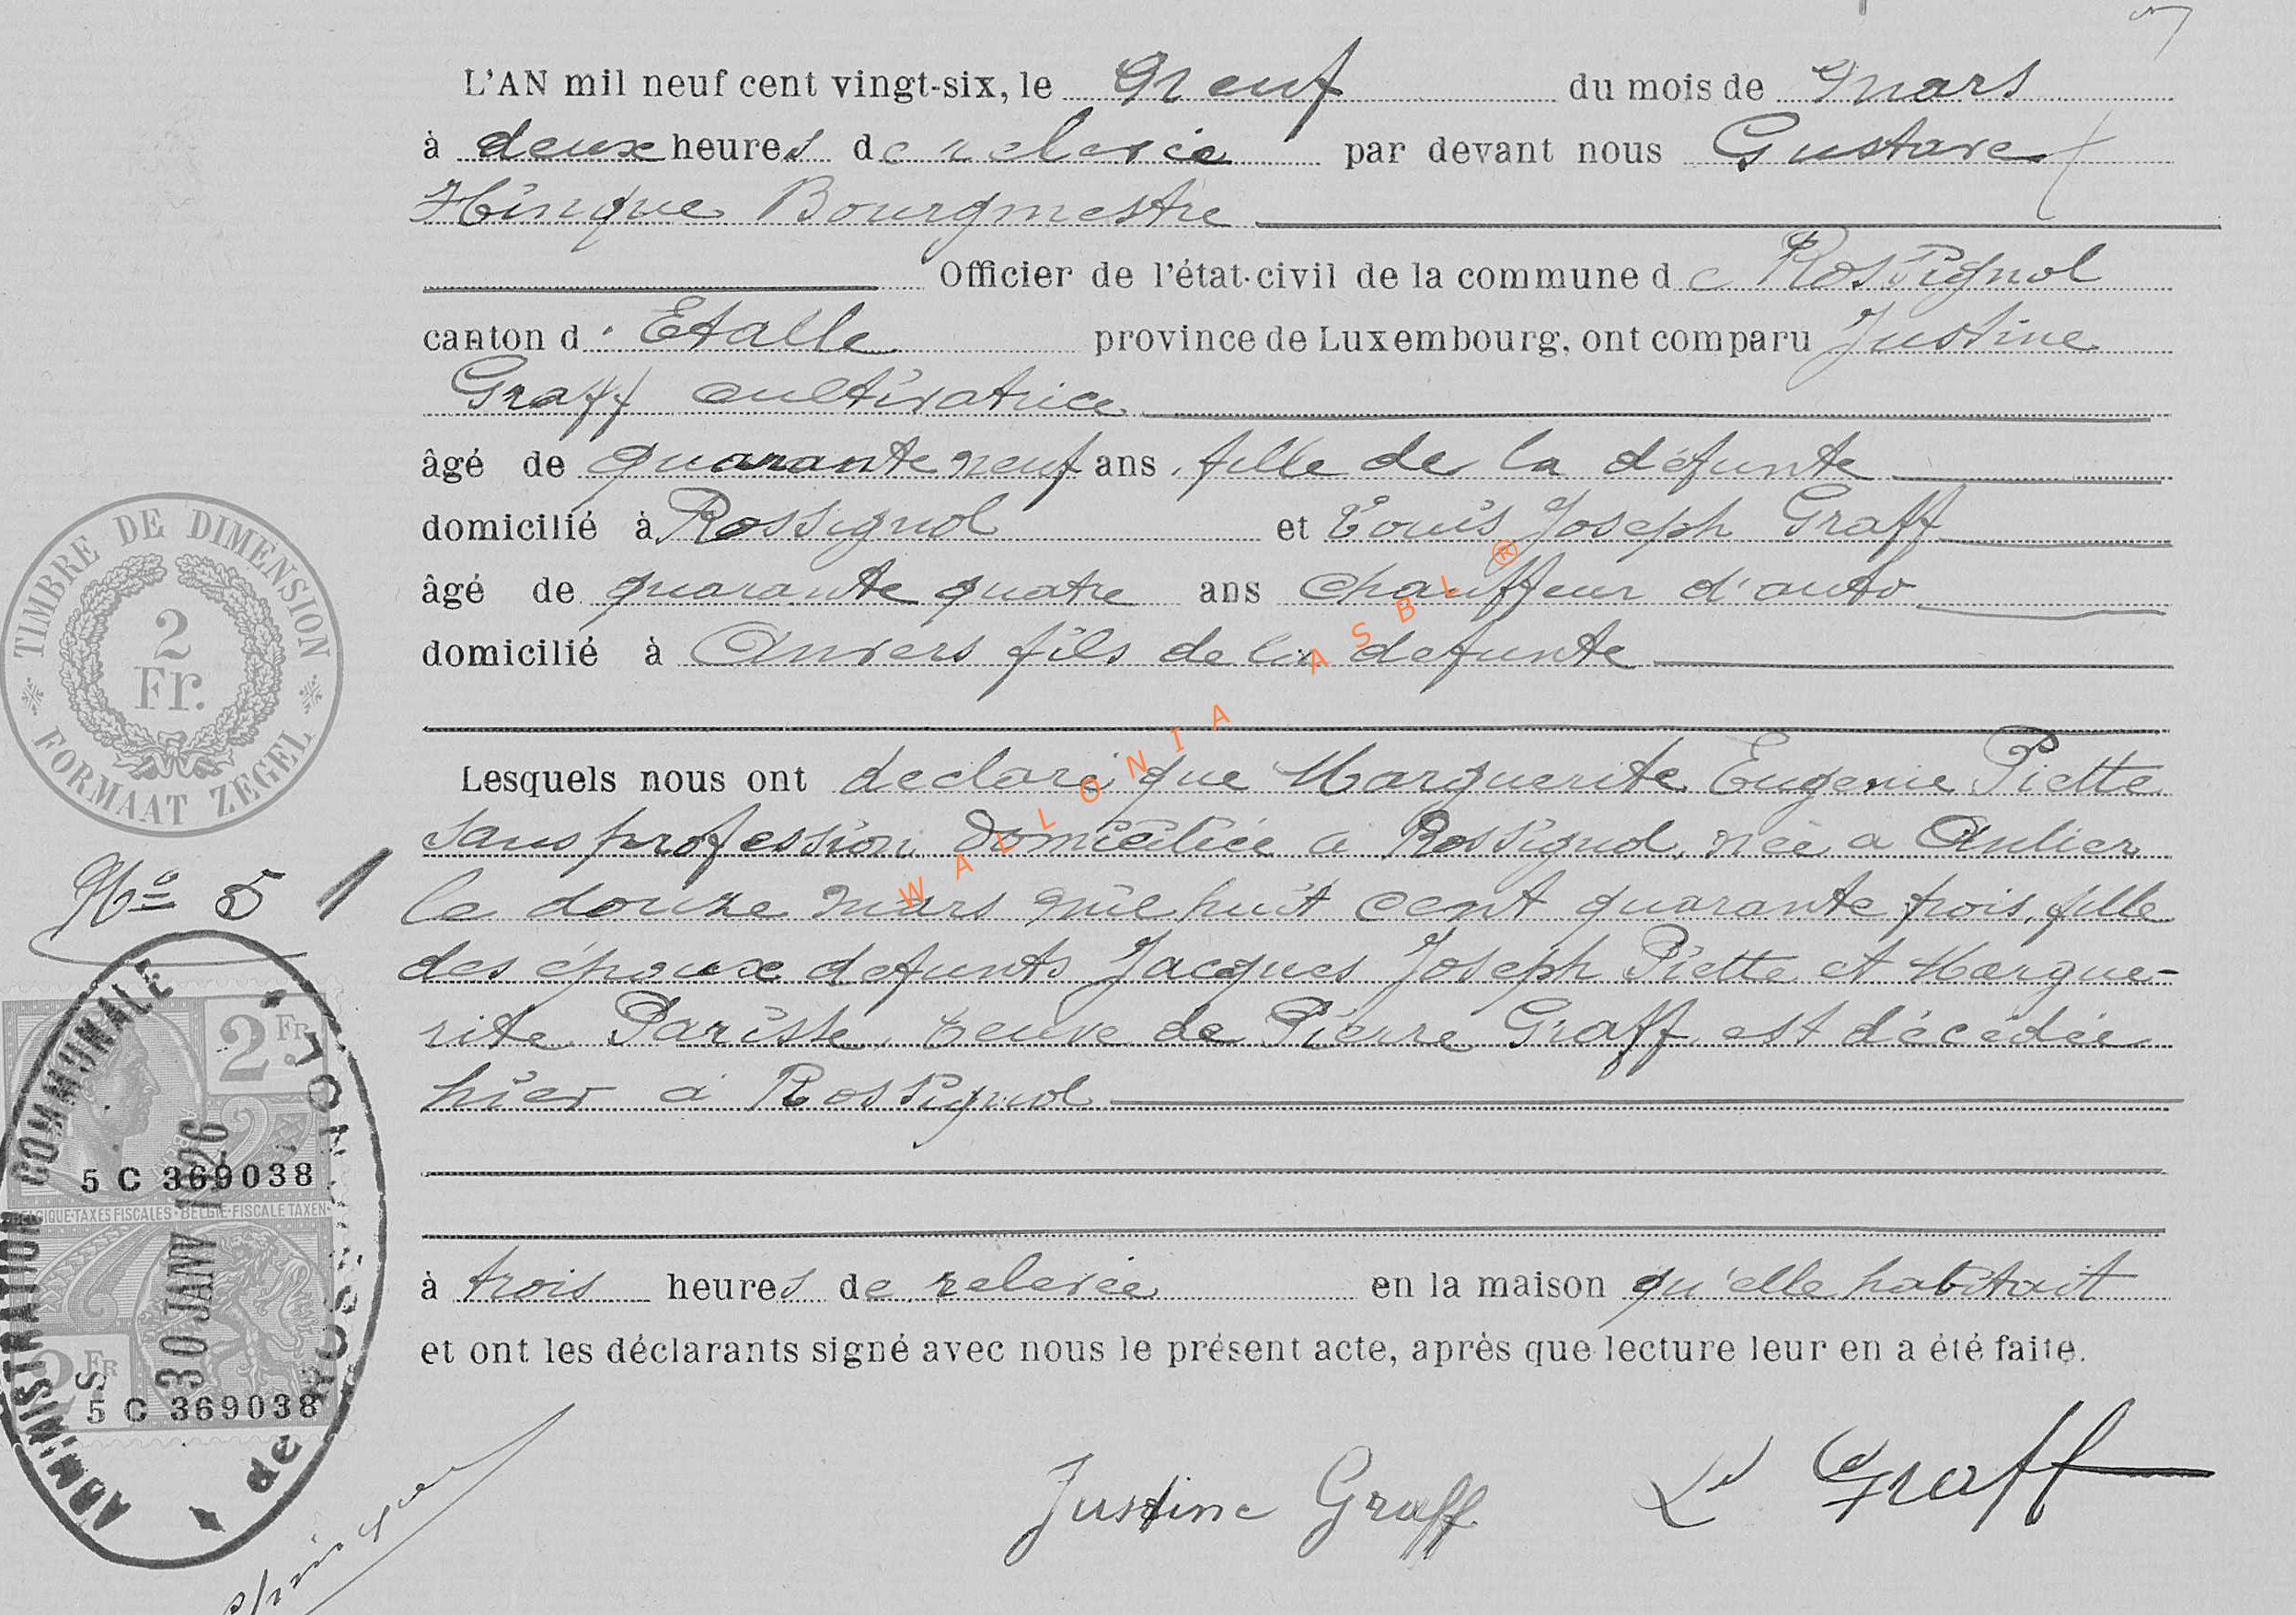 L'AN mil neuf cent vingt-six, le Neuf du mois de Mars
à deux heures de relevée par devant nous Gustave
Hinque Bourgmestre
Officier de l'état-civil de la commune de Rossignol
canton d'Etalle province de Luxembourg, ont comparu Justine
Graff cultivatrice
âgé de quarante neuf ans, fille de la défunte
domicilié à Rossignol et Louis Joseph Graff
âgé de quarante quatre ans chauffeur d'auto
domicilié à Anvers fils de la defunte
Lesquels nous ont declaré que Marguerite Eugenie Piette
sans profession domiciliée à Rossignol, née a Anlier
le douze mars mil huit cent quarante trois, fille
des époux defunts Jacques Joseph Piette et Margue-
rite Parisse, veuve de Pierre Graff, est décédée
hier à Rossignol
à trois heures de relevée en la maison qu'elle habitait
et ont les déclarants signé avec nous le présent acte, après que lecture leur en a été faite.
Justine Graff Ls Graff
Hinque
TIMBRE DE DIMENSION
2
Fr.
FORMAAT ZEGEL
No 5
ADMINISTRATION COMMUNALE
de ROSSIGNOL
2 FR
5 C 369038
BELGIQUE-TAXES FISCALES - BELGIE-FISCALE TAXEN
30 JANV 1926
2 FR
5 C 369038
WALLONIA ASBL ®